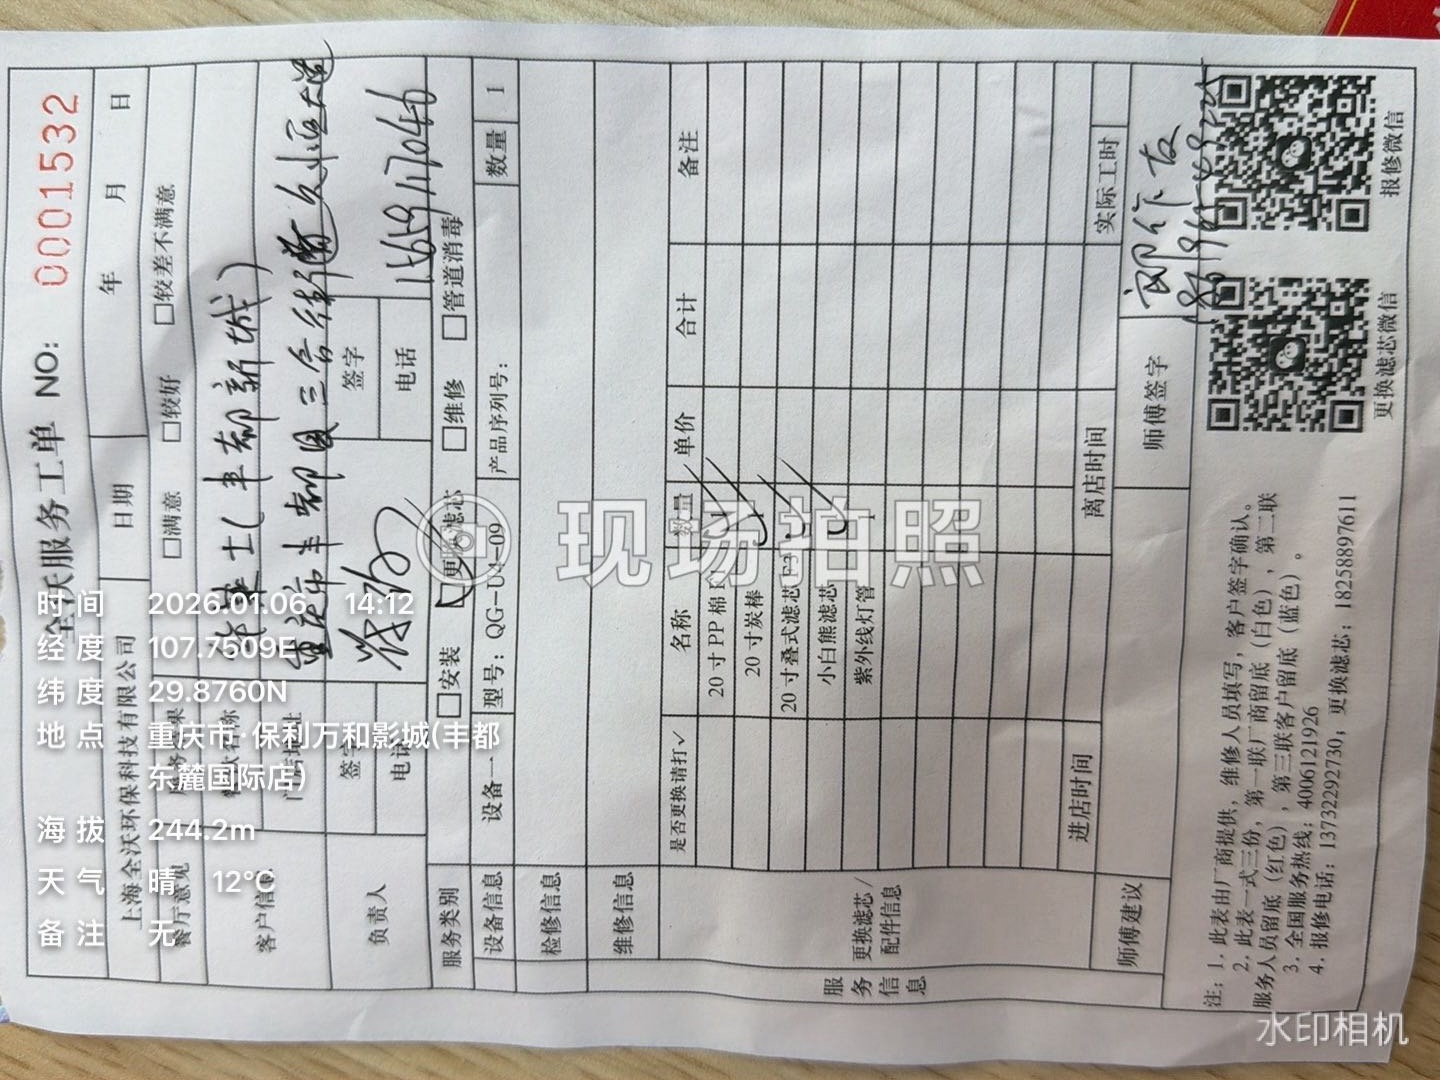 全沃服务工单 NO: 0001532
上海全沃环保科技有限公司 日期 年 月 日
餐厅意见 □满意 □较好 □较差不满意
客户信息
士(丰都新城)
重庆市丰都县三合街道
负责人 签字 签字
电话 电话
服务类别 □安装 更换滤芯 □维修 □管道消毒
设备信息 设备一 型号: QG-U4-09 产品序列号: 数量 1
检修信息
维修信息
服务信息
更换滤芯/配件信息
是否更换请打✓ 名称 数量 单价 合计 备注
20寸PP棉
20寸炭棒
20寸叠式滤芯
小白熊滤芯
紫外线灯管 1
进店时间 离店时间 实际工时
师傅建议 师傅签字
注: 1. 此表由厂商提供,维修人员填写,客户签字确认。
2. 此表一式三份,第一联厂商留底(白色),第二联
服务人员留底(红色),第三联客户留底(蓝色)。
3. 全国服务热线: 4006121926
4. 报修电话: 13732292730; 更换滤芯: 18258897611
更换滤芯微信
报修微信
现场拍照
时间 2026.01.06 14:12
经度 107.7509E
纬度 29.8760N
地点 重庆市·保利万和影城(丰都
东麓国际店)
海拔 244.2m
天气 晴 12℃
备注 无
水印相机